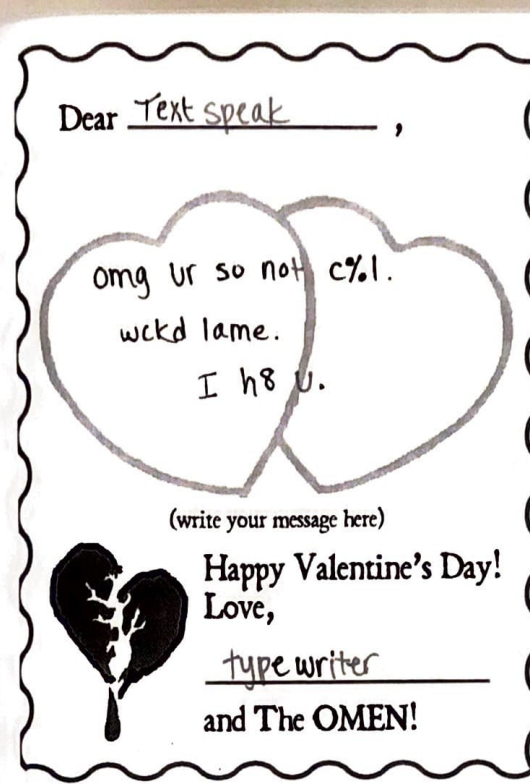 Dear Text speak ,
omg ur so not c%l.
wckd lame.
I h8 U.
(write your message here)
Happy Valentine's Day!
Love,
typewriter
and The OMEN!